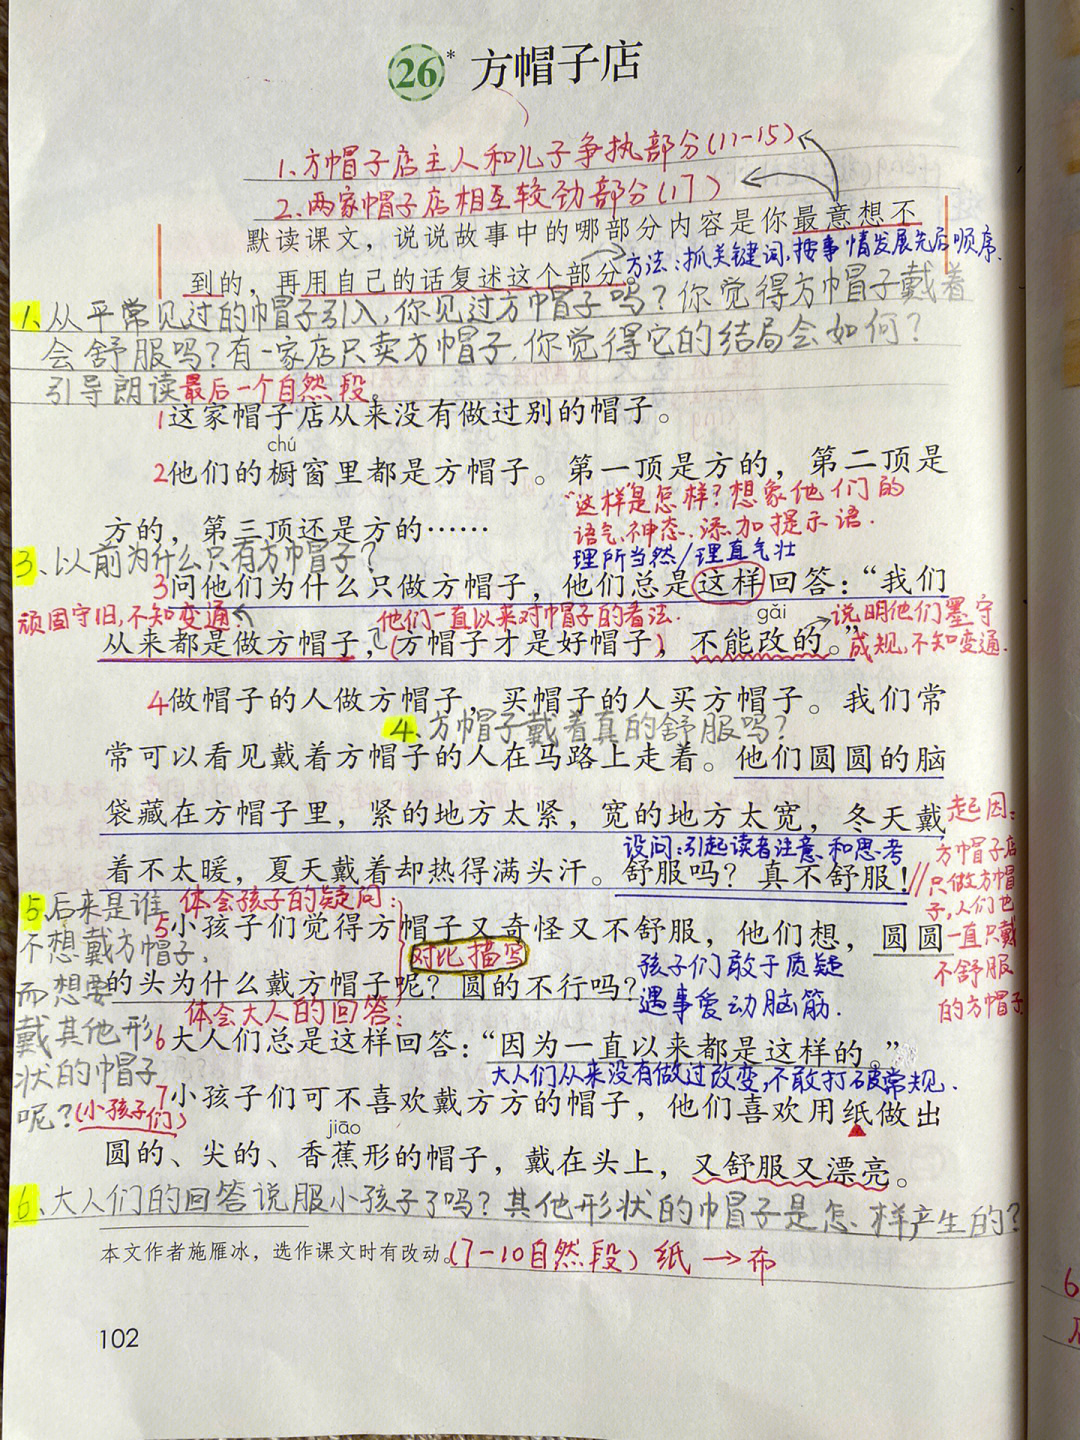 26* 方帽子店
1.方帽子店主人和儿子争执部分(11-15)
2.两家帽子店相互较劲部分(17)
默读课文，说说故事中的哪部分内容是你最意想不
方法:抓关键词,按事情发展先后顺序.
到的，再用自己的话复述这个部分。
1、从平常见过的帽子引入,你见过方帽子吗?你觉得方帽子戴着
会舒服吗?有一家店只卖方帽子,你觉得它的结局会如何?
引导朗读最后一个自然段。
1这家帽子店从来没有做过别的帽子。
chú
2他们的橱窗里都是方帽子。第一顶是方的，第二顶是
"这样"是怎样?想象他们的
方的，第三顶还是方的……
语气、神态.添加提示语.
3、以前为什么只有方帽子?
理所当然/理直气壮
3问他们为什么只做方帽子，他们总是这样回答：“我们
顽固守旧,不知变通
他们一直以来对帽子的看法.
gǎi
说明他们墨守
从来都是做方帽子，(方帽子才是好帽子)，不能改的。”
成规,不知变通.
4做帽子的人做方帽子，买帽子的人买方帽子。我们常
4、方帽子戴着真的舒服吗?
常可以看见戴着方帽子的人在马路上走着。他们圆圆的脑
袋藏在方帽子里，紧的地方太紧，宽的地方太宽，冬天戴
起因:
设问:引起读者注意和思考
方帽子店
着不太暖，夏天戴着却热得满头汗。舒服吗？真不舒服！
只做方帽
子,人们也
5、后来是谁
体会孩子的疑问:
5小孩子们觉得方帽子又奇怪又不舒服，他们想，圆圆
一直只戴
不想戴方帽子,
对比描写
孩子们敢于质疑
不舒服
而想要
的头为什么戴方帽子呢？圆的不行吗？
遇事爱动脑筋.
的方帽子
体会大人的回答:
戴其他形
6大人们总是这样回答：“因为一直以来都是这样的。”
状的帽子
大人们从来没有做过改变,不敢打破常规.
呢?(小孩子们)
7小孩子们可不喜欢戴方方的帽子，他们喜欢用纸做出
jiāo
圆的、尖的、香蕉形的帽子，戴在头上，又舒服又漂亮。
6、大人们的回答说服小孩子了吗?其他形状的帽子是怎样产生的?
本文作者施雁冰，选作课文时有改动。
(7-10自然段) 纸→布
102
6